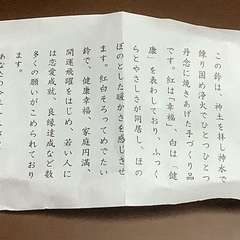 この鈴は、神土を拝し神水で
練り固め浄火でひとつひとつ
丹念に焼きあげた手づくり品
です。紅は「幸福」、白は「健
康」を表わしており、ふっく
らとやさしさが同居し、ほの
ぼのとした暖かさを感じさせ
ます。紅白そろってめでたい
鈴で、健康幸福、家庭円満、
開運飛躍をはじめ、若い人に
は恋愛成就、良縁達成など数
多くの願いがこめられており
ます。